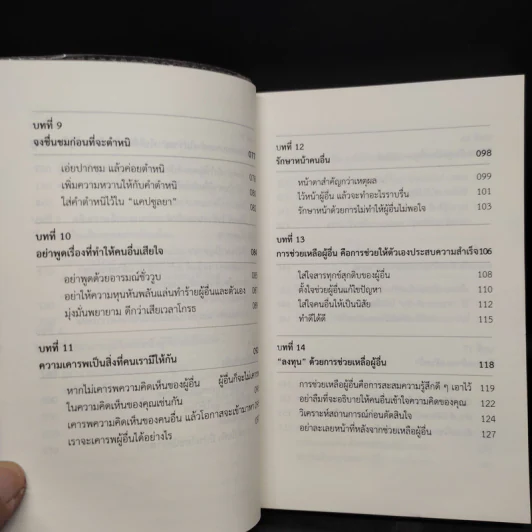 บทที่ 9
จงชื่นชมก่อนที่จะตำหนิ 077
เอ่ยปากชม แล้วค่อยตำหนิ
เพิ่มความหวานให้กับคำตำหนิ
ใส่คำตำหนิไว้ใน “แคปซูลยา”
บทที่ 10
อย่าพูดเรื่องที่ทำให้คนอื่นเสียใจ
อย่าพูดด้วยอารมณ์ชั่ววูบ
อย่าให้ความหุนหันพลันแล่นทำร้ายผู้อื่นและตัวเอง
มุ่งมั่นพยายาม ดีกว่าเสียเวลาโกรธ
บทที่ 11
ความเคารพเป็นสิ่งที่คนเรามีให้กัน
หากไม่เคารพความคิดเห็นของผู้อื่น ผู้อื่นก็จะไม่เคารพ
ในความคิดเห็นของคุณเช่นกัน
เคารพความคิดเห็นของคนอื่น แล้วโอกาสจะเข้ามาหา
เราจะเคารพผู้อื่นได้อย่างไร
บทที่ 12
รักษาหน้าคนอื่น 098
หน้าตาสำคัญกว่าเหตุผล 099
ไว้หน้าผู้อื่น แล้วจะทำอะไรราบรื่น 101
รักษาหน้าด้วยการไม่ทำให้ผู้อื่นไม่พอใจ 103
บทที่ 13
การช่วยเหลือผู้อื่น คือการช่วยให้ตัวเองประสบความสำเร็จ 106
ใส่ใจสารทุกข์สุกดิบของผู้อื่น 108
ตั้งใจช่วยผู้อื่นแก้ไขปัญหา 110
ใส่ใจคนอื่นให้เป็นนิสัย 112
ทำดีได้ดี 115
บทที่ 14
“ลงทุน” ด้วยการช่วยเหลือผู้อื่น 118
การช่วยเหลือผู้อื่นคือการสะสมความรู้สึกดี ๆ เอาไว้ 119
อย่าลืมที่จะอธิบายให้คนอื่นเข้าใจความคิดของคุณ 122
วิเคราะห์สถานการณ์ก่อนตัดสินใจ 124
อย่าละเลยหน้าที่หลังจากช่วยเหลือผู้อื่น 127